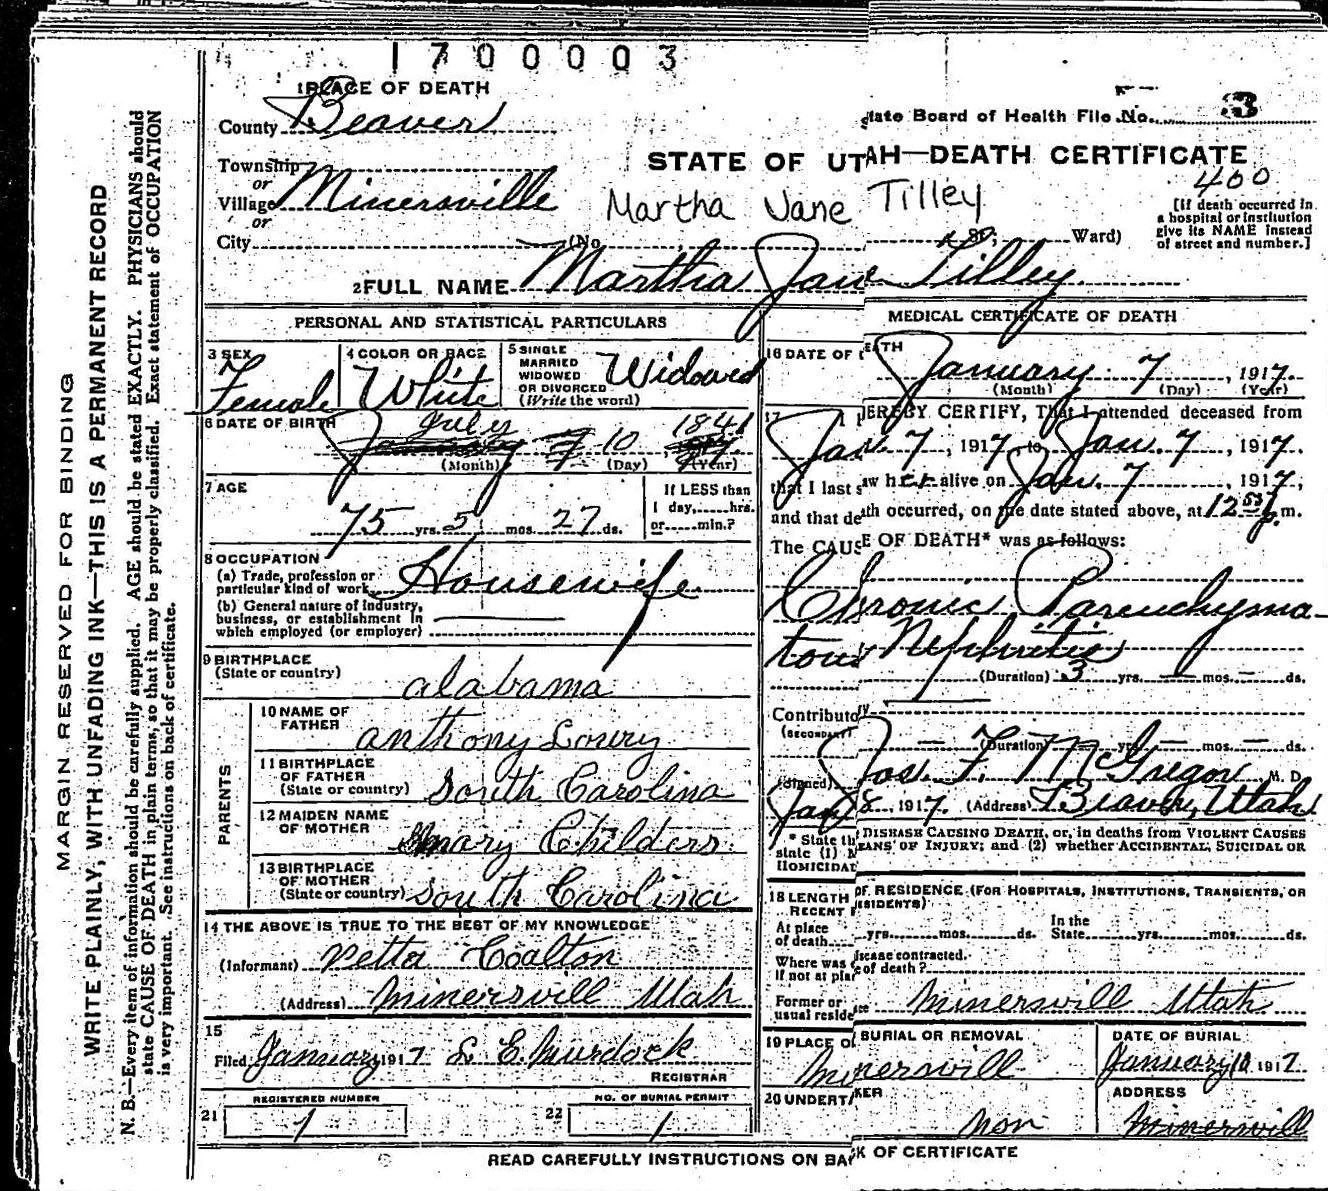 1700003
1 PLACE OF DEATH
County Beaver
State Board of Health File No. 3
Township
or
Village Minersville
or
City (No. St; Ward)
STATE OF UTAH—DEATH CERTIFICATE
400
Martha Jane Tilley
[If death occurred in
a hospital or institution
give its NAME instead
of street and number.]
2 FULL NAME Martha Jane Tilley
PERSONAL AND STATISTICAL PARTICULARS
3 SEX
Female
4 COLOR OR RACE
White
5 SINGLE
MARRIED
WIDOWED
OR DIVORCED
(Write the word)
Widowed
6 DATE OF BIRTH
July 10 1841
January 7
(Month) (Day) (Year)
7 AGE
75 yrs. 5 mos. 27 ds.
If LESS than
1 day, hrs.
or min.?
8 OCCUPATION
(a) Trade, profession or
particular kind of work Housewife
(b) General nature of industry,
business, or establishment in
which employed (or employer)
9 BIRTHPLACE
(State or country)
alabama
PARENTS
10 NAME OF
FATHER
anthony Lowry
11 BIRTHPLACE
OF FATHER
(State or country) South Carolina
12 MAIDEN NAME
OF MOTHER
mary Childers
13 BIRTHPLACE
OF MOTHER
(State or country) South Carolina
14 THE ABOVE IS TRUE TO THE BEST OF MY KNOWLEDGE
(Informant) Vetta Coalton
(Address) minersvill Utah
15
Filed January 1917 L. E. Murdock
REGISTRAR
21 REGISTERED NUMBER
1
22 NO. OF BURIAL PERMIT
1
MEDICAL CERTIFICATE OF DEATH
16 DATE OF DEATH
January 7, 1917.
(Month) (Day) (Year)
17 I HEREBY CERTIFY, That I attended deceased from
Jan. 7, 1917, to Jan. 7, 1917.
that I last saw her alive on Jan. 7, 1917,
and that death occurred, on the date stated above, at 12 55 p. m.
The CAUSE OF DEATH* was as follows:
Chronic Parenchyma-
tous Nephritis
(Duration) 3 yrs. — mos. — ds.
Contributory
(SECONDARY)
(Duration) yrs. — mos. — ds.
(Signed) Jos. F. McGregor M. D.
Jan 8 1917. (Address) Beaver, Utah.
* State th DISEASE CAUSING DEATH, or, in deaths from VIOLENT CAUSES
state (1) MEANS OF INJURY; and (2) whether ACCIDENTAL, SUICIDAL OR
HOMICIDAL
18 LENGTH OF RESIDENCE (FOR HOSPITALS, INSTITUTIONS, TRANSIENTS, OR
RECENT RESIDENTS)
At place
of death yrs. mos. ds.
In the
State yrs. mos. ds.
Where was disease contracted.
If not at place of death?
Former or
usual residence minersvill Utah
19 PLACE OF BURIAL OR REMOVAL
Minersvill
DATE OF BURIAL
January 10 1917
20 UNDERTAKER
non
ADDRESS
minersvill
READ CAREFULLY INSTRUCTIONS ON BACK OF CERTIFICATE
MARGIN RESERVED FOR BINDING
WRITE PLAINLY, WITH UNFADING INK—THIS IS A PERMANENT RECORD
N. B.—Every item of information should be carefully supplied. AGE should be stated EXACTLY. PHYSICIANS should
state CAUSE OF DEATH in plain terms, so that it may be properly classified. Exact statement of OCCUPATION
is very important. See instructions on back of certificate.